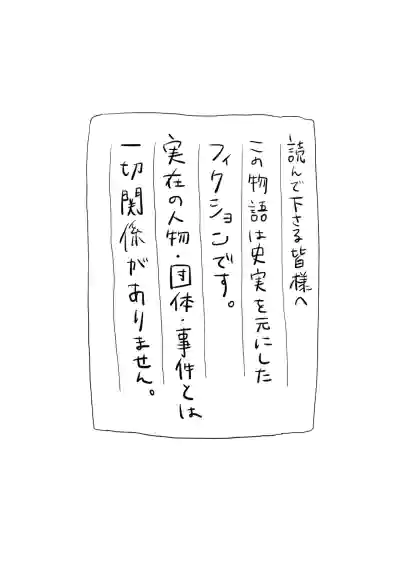 読んで下さる皆様へ
この物語は史実を元にした
フィクションです。
実在の人物・団体・事件とは
一切関係がありません。